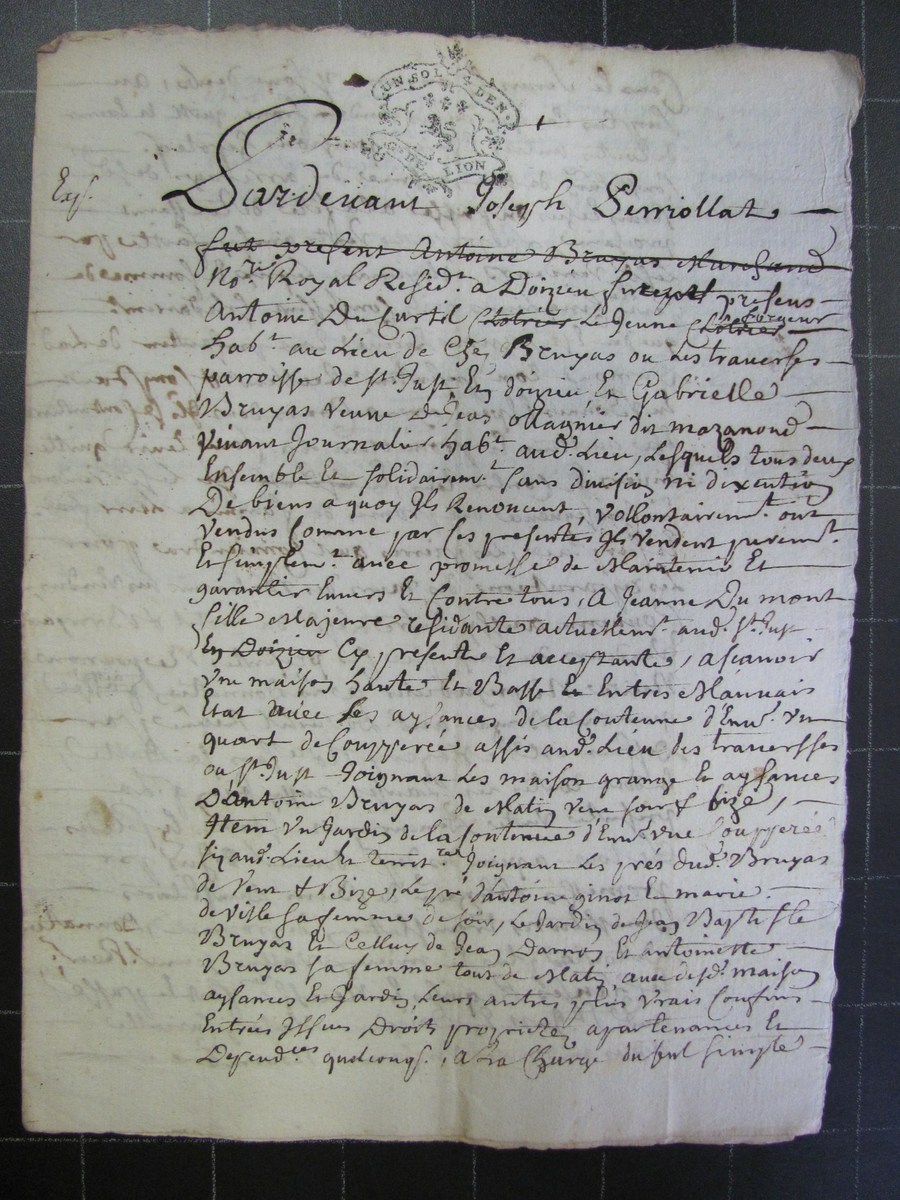 UN SOL 4 DEN
G. DE LION
Exp.
Pardevant Joseph Perriollat
fut present Antoine Bruyas Marchand
No.re Royal Resid.t a Doizieu furent presens
Antoine Du Curtil Clotrier le Jeune Clotrier forgeur
hab.t au Lieu de Chez Bruyas ou Les traverses
parroisse de st. Just En doizieu Et Gabrielle
Bruyas veuve de Jean ollagnier dit mazanond
vivant Journalier hab.t aud. Lieu, Lesquels tous deux
Ensemble Et solidairem.t sans division ni dixcution
De biens a quoy Ils Renoncent, vollontairem.t ont
vendus Comme par Ces presentes Ils vendent purem.t
Et simplem.t avec promesse de Maintenir Et
garantir Envers Et Contre tous, A Jeanne Du mont
fille Majeure residante actuellem.t aud. st. Just
En Doizieu Cy presente Et acceptante, ascavoir
une maison haute Et Basse En tres Mauvais
Etat avec ses aysances de la Contenue d'Env. un
quart de Coupperée assis aud. Lieu des traversses
ou st. Just Joignant Les maison grange Et aysances
D'antoine Bruyas de Matin vent soir & bize,
Item un Jardin de la Contenue d'Env. une Coupperée
sis aud. Lieu Et territ.re Joignant Les prés dud. Bruyas
de vent & Bize, Le pré d'antoine ginot Et marie
de ville sa femme de soir, Le Jardin de Jean Baptiste
Bruyas Et Celluy de Jean Darnon Et antoinette
Bruyas sa femme tous de Matin, avec desd. maison
aysances Et Jardin Leurs autres plus vrais Confins
Entrées Issues Droits proprietez apartenances Et
Depend.ces quelconqs. a La Charge du seul simple